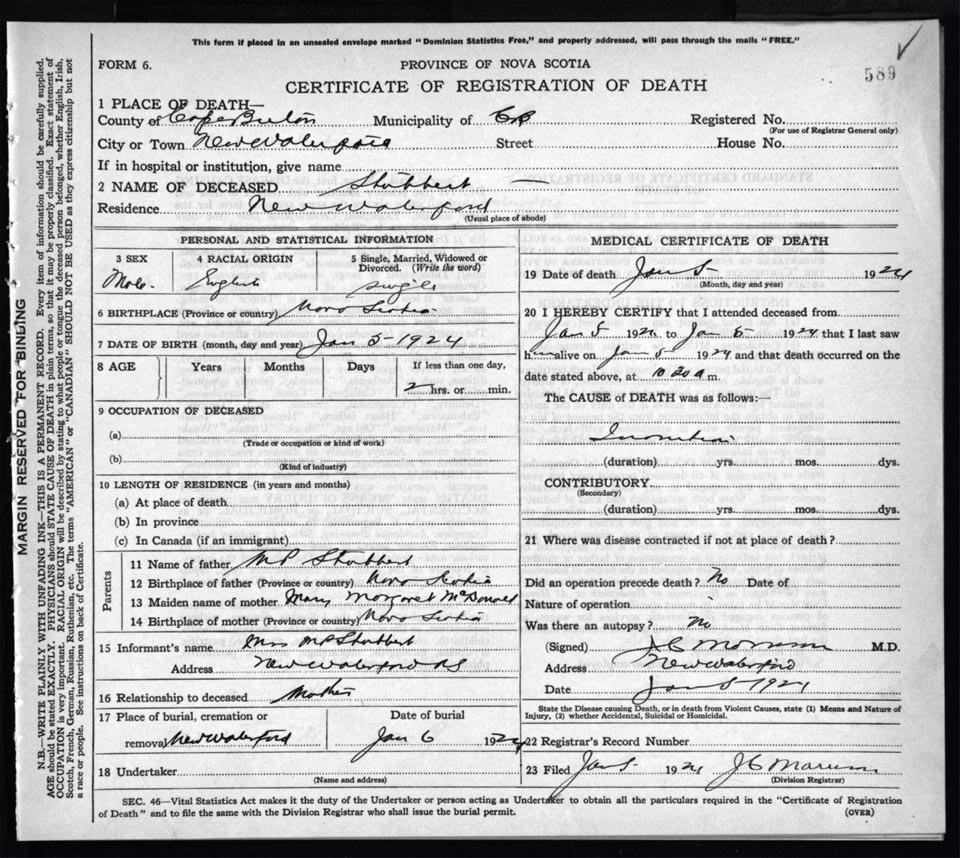 This form if placed in an unsealed envelope marked "Dominion Statistics Free," and properly addressed, will pass through the mails "FREE."
FORM 6.
PROVINCE OF NOVA SCOTIA
589
CERTIFICATE OF REGISTRATION OF DEATH
1 PLACE OF DEATH—
County of Cape Breton Municipality of CB Registered No.
(For use of Registrar General only)
City or Town New Waterford Street House No.
If in hospital or institution, give name
2 NAME OF DECEASED Stubbert —
Residence New Waterford
(Usual place of abode)
PERSONAL AND STATISTICAL INFORMATION
3 SEX
Male
4 RACIAL ORIGIN
English
5 Single, Married, Widowed or Divorced. (Write the word)
single
6 BIRTHPLACE (Province or country) Nova Scotia
7 DATE OF BIRTH (month, day and year) Jan 5-1924
8 AGE Years Months Days If less than one day,
2 hrs. or min.
9 OCCUPATION OF DECEASED
(a)
(Trade or occupation or kind of work)
(b)
(Kind of industry)
10 LENGTH OF RESIDENCE (in years and months)
(a) At place of death
(b) In province
(c) In Canada (if an immigrant)
Parents
11 Name of father MP Stubbert
12 Birthplace of father (Province or country) Nova Scotia
13 Maiden name of mother Mary Margaret McDonald
14 Birthplace of mother (Province or country) Nova Scotia
15 Informant's name Mrs MP Stubbert
Address New Waterford NS
16 Relationship to deceased Mother
17 Place of burial, cremation or
removal New Waterford
Date of burial
Jan 6 1924
18 Undertaker
(Name and address)
MEDICAL CERTIFICATE OF DEATH
19 Date of death Jan 5 1924
(Month, day and year)
20 I HEREBY CERTIFY that I attended deceased from
Jan 5 1924 to Jan 5 1924 that I last saw
him alive on Jan 5 1924 and that death occurred on the
date stated above, at 10 20 a m.
The CAUSE of DEATH was as follows:—
Inanition
(duration) yrs. mos. dys.
CONTRIBUTORY
(Secondary)
(duration) yrs. mos. dys.
21 Where was disease contracted if not at place of death?
Did an operation precede death? No Date of
Nature of operation
Was there an autopsy? No
(Signed) M.D.
Address New Waterford
Date Jan 5 1924
State the Disease causing Death, or in death from Violent Causes, state (1) Means and Nature of
Injury, (2) whether Accidental, Suicidal or Homicidal.
22 Registrar's Record Number
23 Filed Jan 5 1924
(Division Registrar)
SEC. 46—Vital Statistics Act makes it the duty of the Undertaker or person acting as Undertaker to obtain all the particulars required in the "Certificate of Registration
of Death" and to file the same with the Division Registrar who shall issue the burial permit.
(OVER)
MARGIN RESERVED FOR BINDING
N.B.—WRITE PLAINLY WITH UNFADING INK—THIS IS A PERMANENT RECORD. Every item of information should be carefully supplied.
AGE should be stated EXACTLY. PHYSICIANS should STATE CAUSE OF DEATH in plain terms, so that it may be properly classified. Exact statement of
OCCUPATION is very important. RACIAL ORIGIN will be described by stating to what people or tongue the deceased person belonged, whether English, Irish,
Scotch, French, German, Russian, Ruthenian, etc. The terms "AMERICAN" or "CANADIAN" SHOULD NOT BE USED as they express citizenship but not
a race or people. See instructions on back of Certificate.